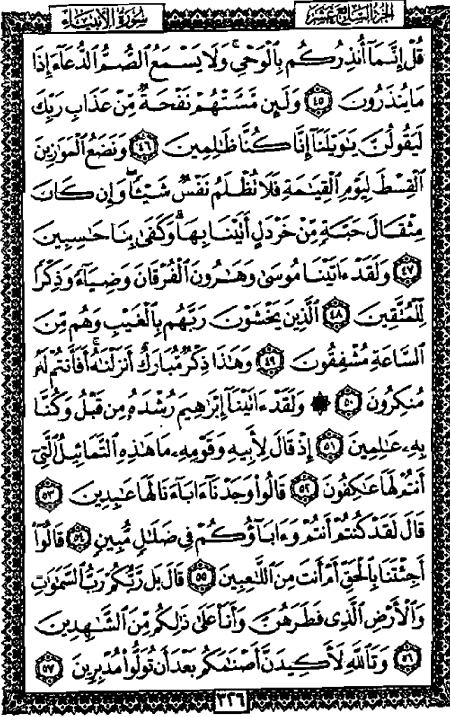 سُورَةُ الأَنبيَاء الجزء السابع عشر
قُلْ إِنَّمَآ أُنذِرُكُم بِٱلْوَحْىِ ۚ وَلَا يَسْمَعُ ٱلصُّمُّ ٱلدُّعَآءَ إِذَا
مَا يُنذَرُونَ ٤٥ وَلَئِن مَّسَّتْهُمْ نَفْحَةٌ مِّنْ عَذَابِ رَبِّكَ
لَيَقُولُنَّ يَٰوَيْلَنَآ إِنَّا كُنَّا ظَٰلِمِينَ ٤٦ وَنَضَعُ ٱلْمَوَٰزِينَ
ٱلْقِسْطَ لِيَوْمِ ٱلْقِيَٰمَةِ فَلَا تُظْلَمُ نَفْسٌ شَيْـًٔا ۖ وَإِن كَانَ
مِثْقَالَ حَبَّةٍ مِّنْ خَرْدَلٍ أَتَيْنَا بِهَا ۗ وَكَفَىٰ بِنَا حَٰسِبِينَ
٤٧ وَلَقَدْ ءَاتَيْنَا مُوسَىٰ وَهَٰرُونَ ٱلْفُرْقَانَ وَضِيَآءً وَذِكْرًا
لِّلْمُتَّقِينَ ٤٨ ٱلَّذِينَ يَخْشَوْنَ رَبَّهُم بِٱلْغَيْبِ وَهُم مِّنَ
ٱلسَّاعَةِ مُشْفِقُونَ ٤٩ وَهَٰذَا ذِكْرٌ مُّبَارَكٌ أَنزَلْنَٰهُ ۚ أَفَأَنتُمْ لَهُۥ
مُنكِرُونَ ٥٠ ۞ وَلَقَدْ ءَاتَيْنَآ إِبْرَٰهِيمَ رُشْدَهُۥ مِن قَبْلُ وَكُنَّا
بِهِۦ عَٰلِمِينَ ٥١ إِذْ قَالَ لِأَبِيهِ وَقَوْمِهِۦ مَا هَٰذِهِ ٱلتَّمَاثِيلُ ٱلَّتِىٓ
أَنتُمْ لَهَا عَٰكِفُونَ ٥٢ قَالُوا۟ وَجَدْنَآ ءَابَآءَنَا لَهَا عَٰبِدِينَ ٥٣
قَالَ لَقَدْ كُنتُمْ أَنتُمْ وَءَابَآؤُكُمْ فِى ضَلَٰلٍ مُّبِينٍ ٥٤ قَالُوٓا۟
أَجِئْتَنَا بِٱلْحَقِّ أَمْ أَنتَ مِنَ ٱللَّٰعِبِينَ ٥٥ قَالَ بَل رَّبُّكُمْ رَبُّ ٱلسَّمَٰوَٰتِ
وَٱلْأَرْضِ ٱلَّذِى فَطَرَهُنَّ وَأَنَا۠ عَلَىٰ ذَٰلِكُم مِّنَ ٱلشَّٰهِدِينَ
٥٦ وَتَٱللَّهِ لَأَكِيدَنَّ أَصْنَٰمَكُم بَعْدَ أَن تُوَلُّوا۟ مُدْبِرِينَ ٥٧
٣٢٦